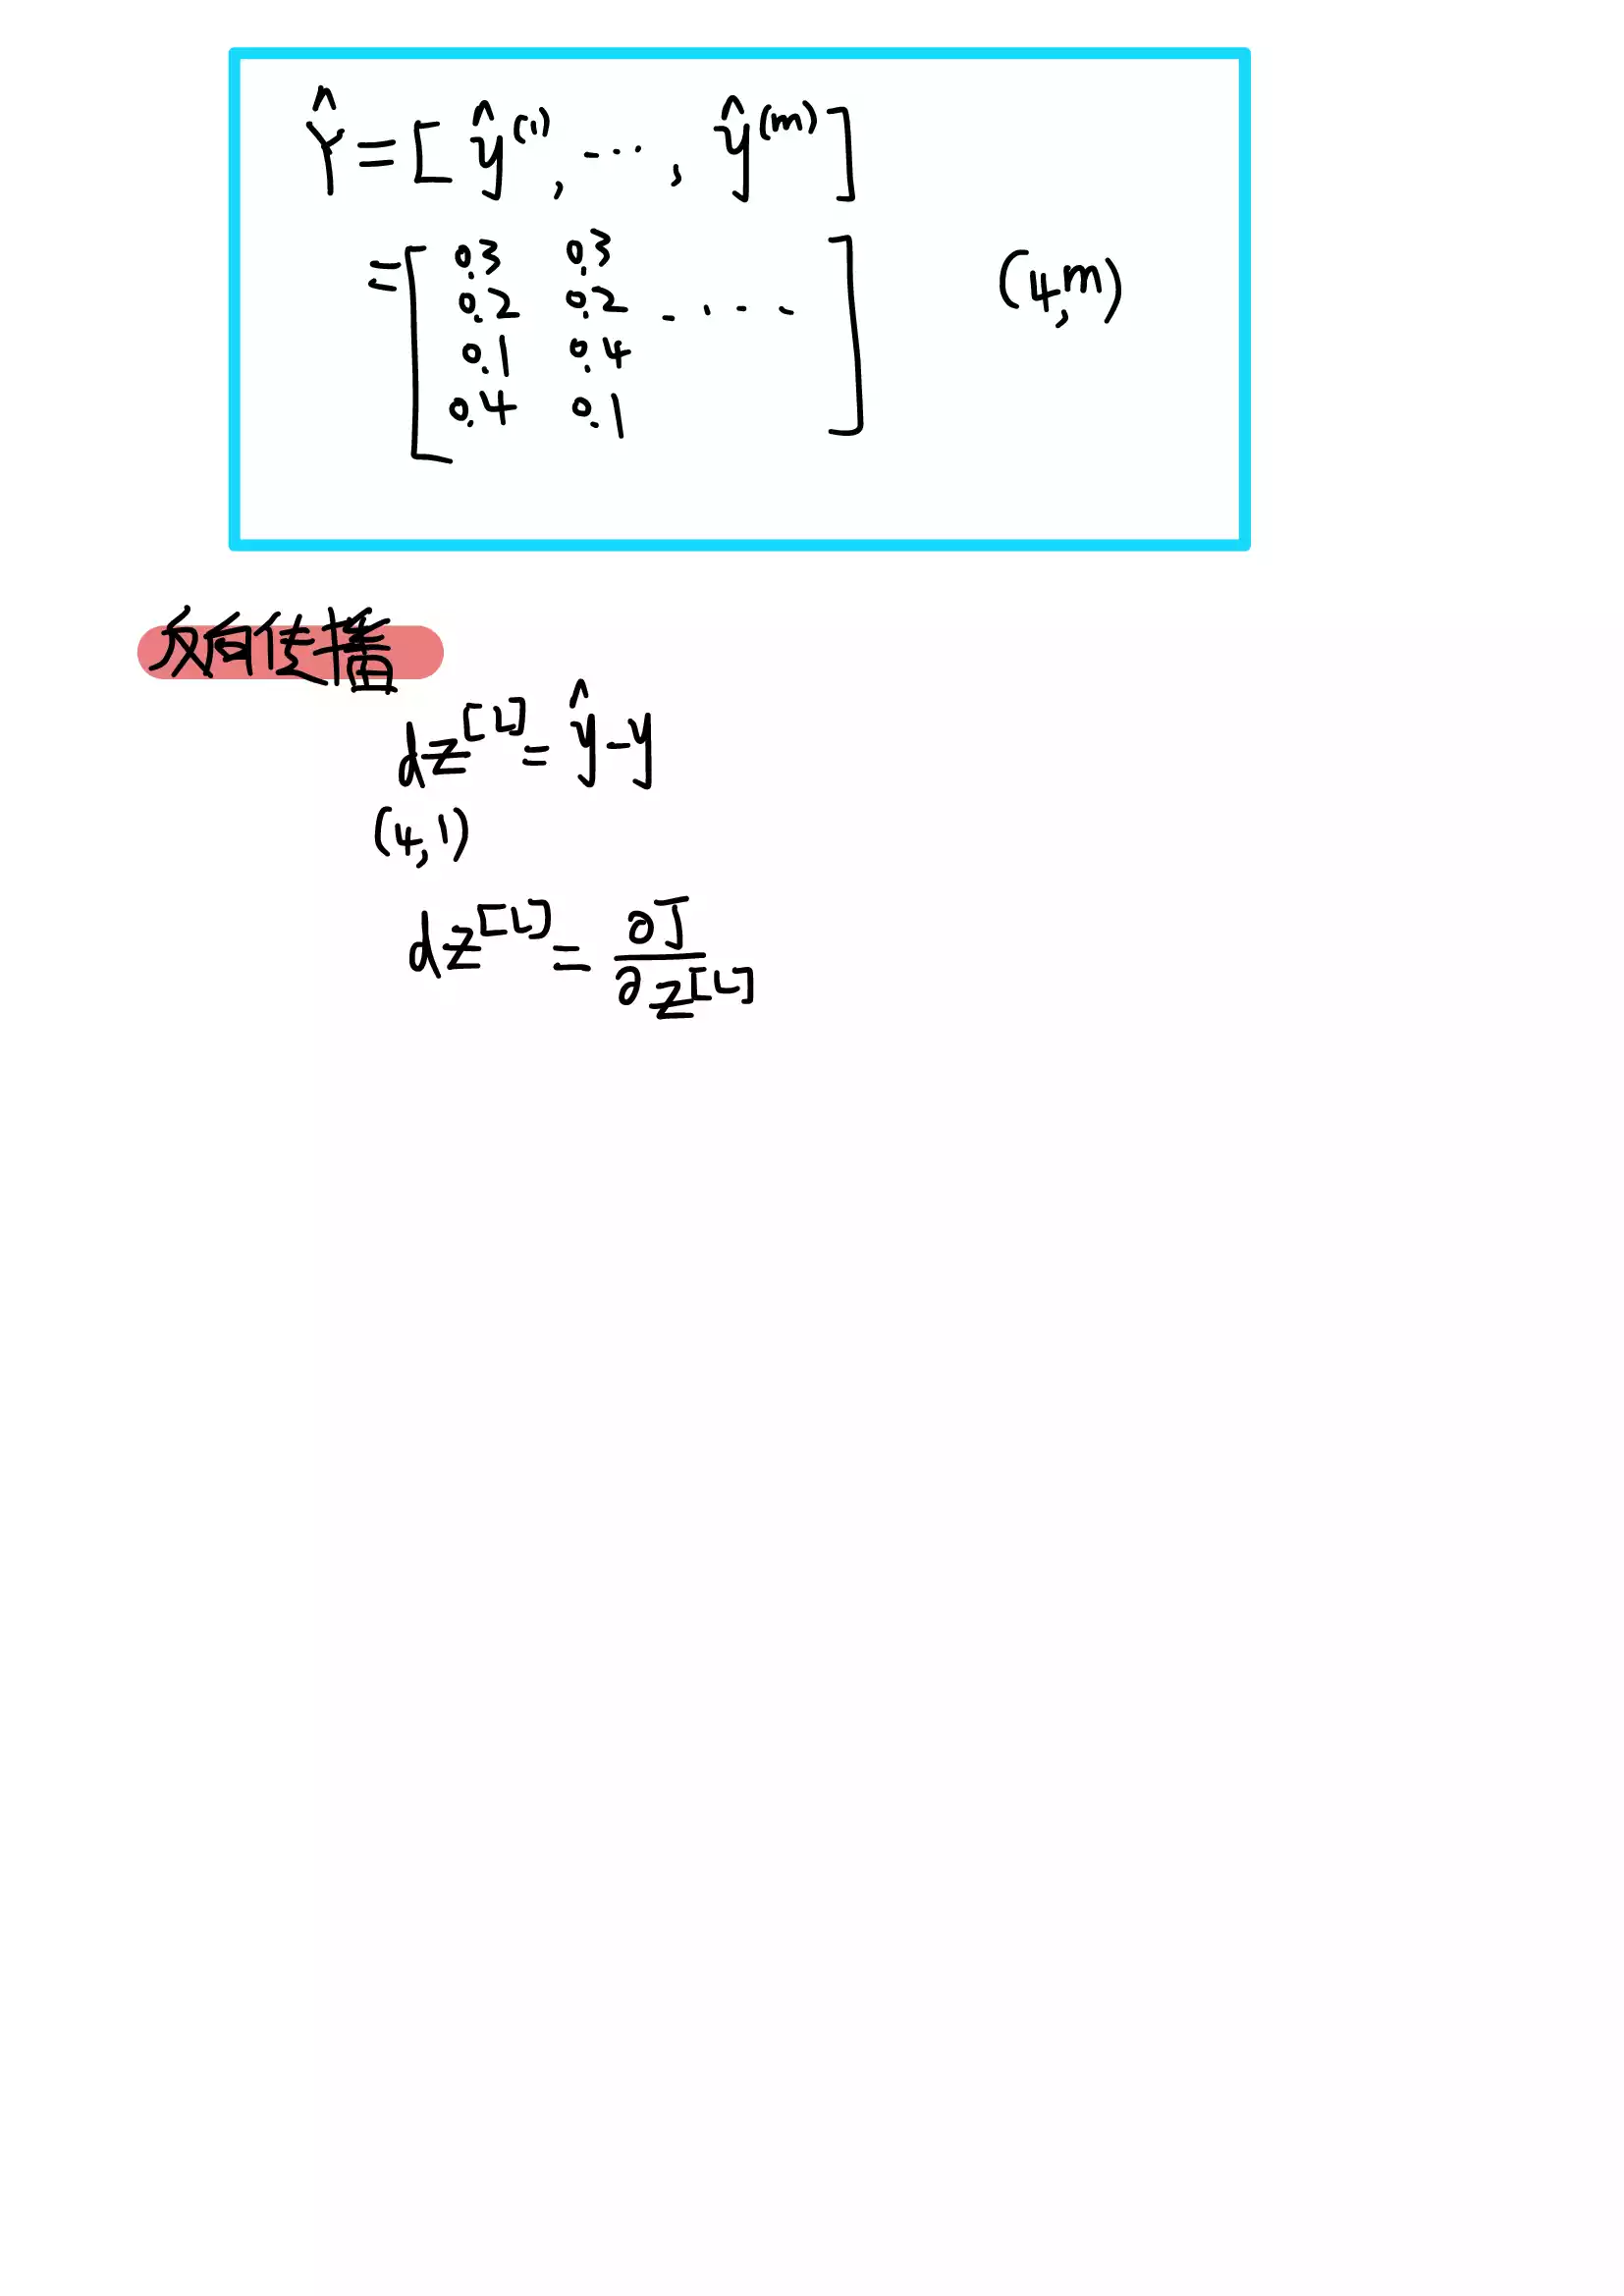 Ŷ = [ ŷ⁽¹⁾, ⋯ , ŷ⁽ᵐ⁾ ]
= [ 0.3 0.3
0.2 0.2 ⋯⋯ ] (4,m)
0.1 0.4
0.4 0.1
反向传播
dz^[L] = ŷ - y
(4,1)
dz^[L] = ∂J / ∂z^[L]